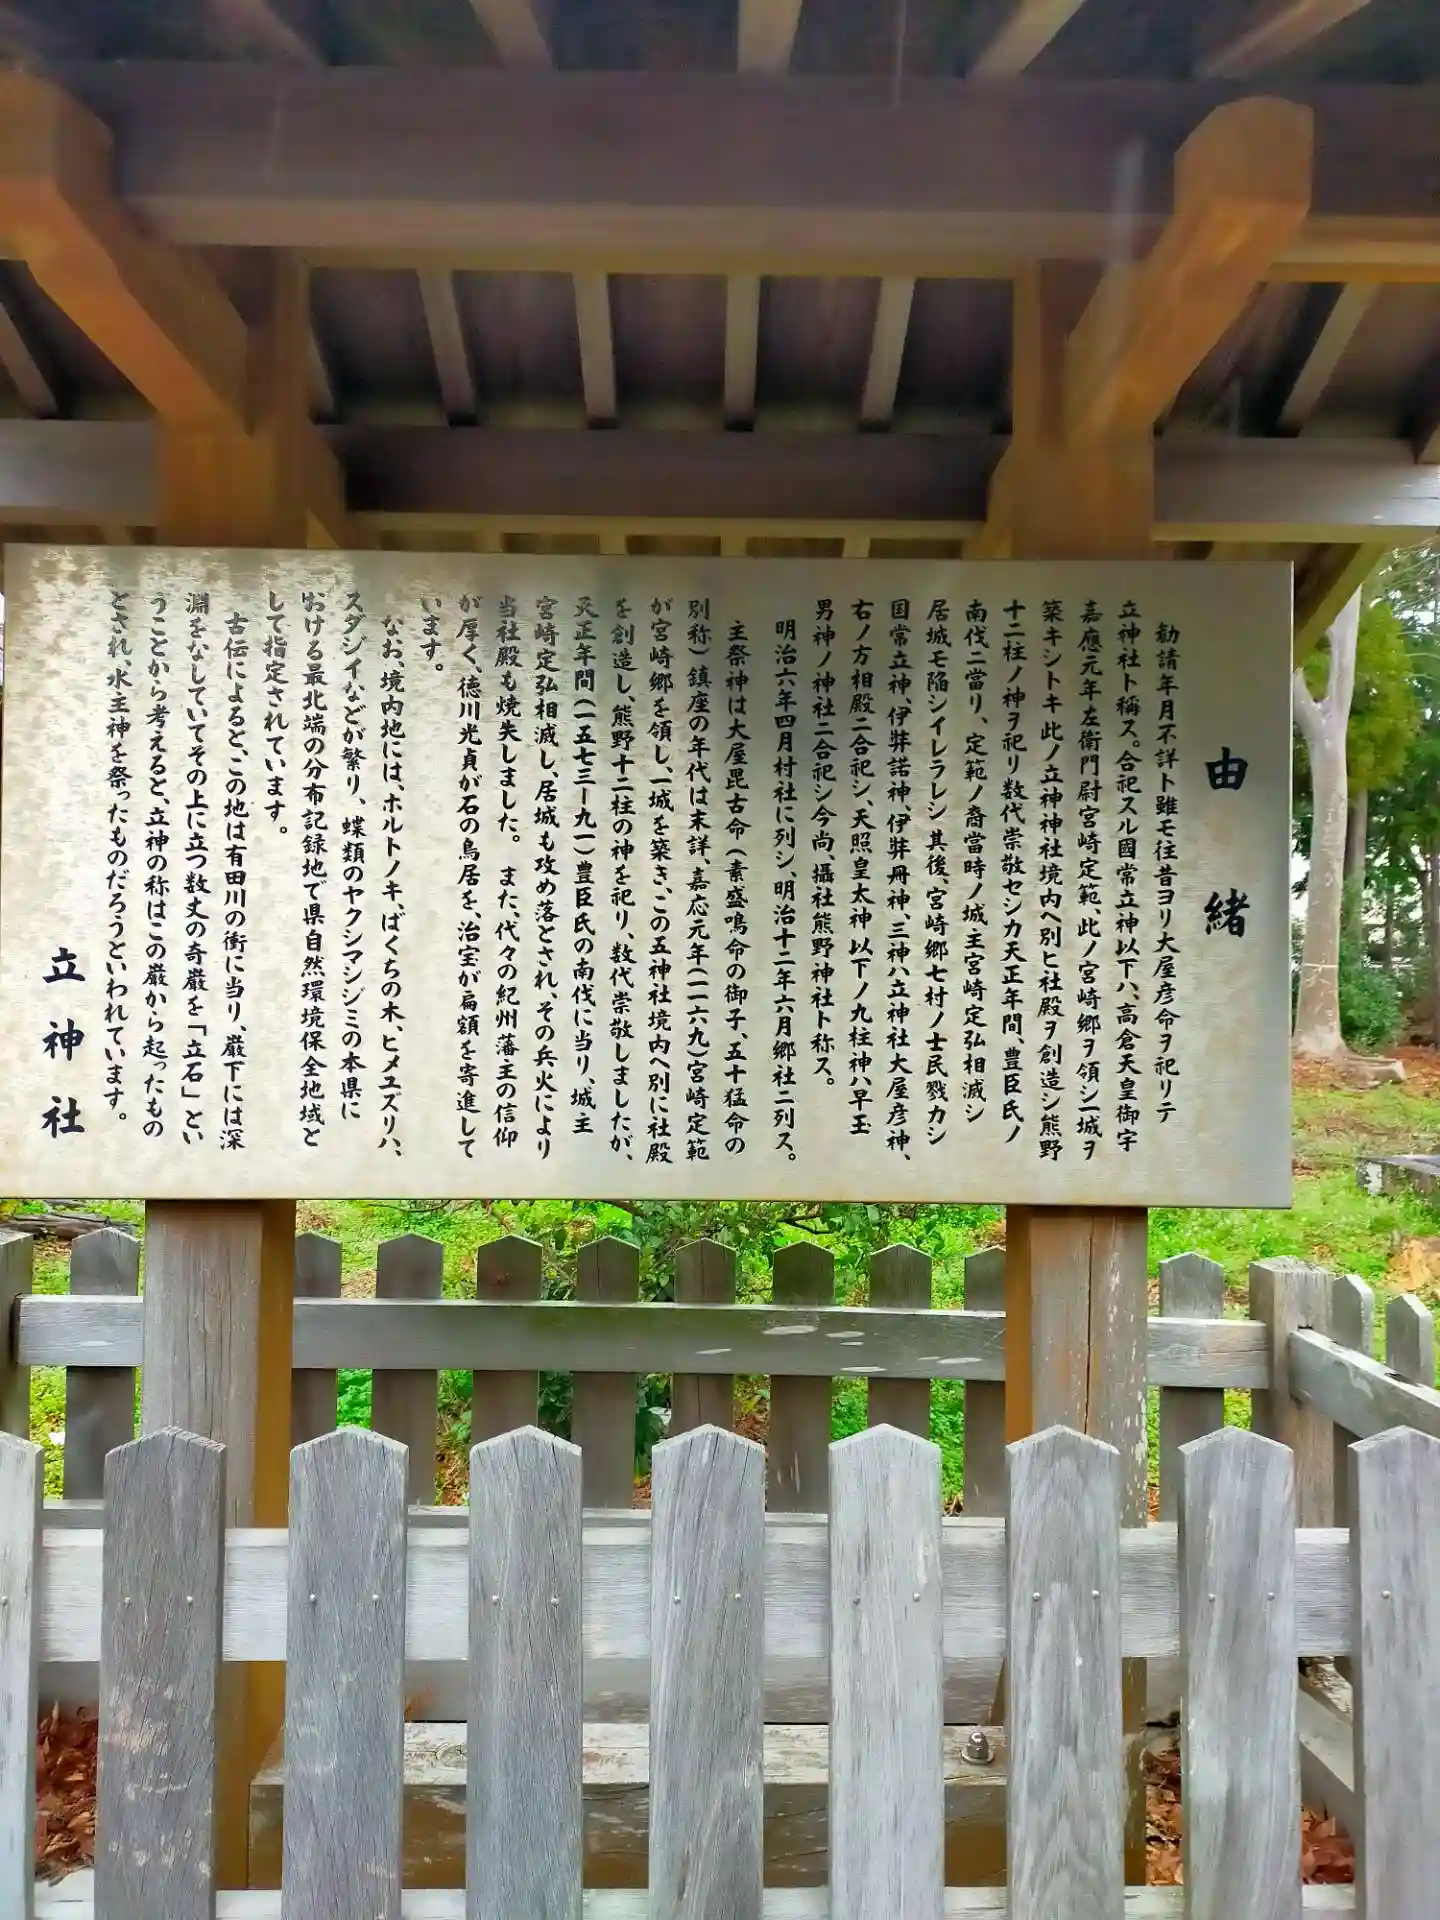 由緒
勧請年月不詳ト雖モ往昔ヨリ大屋彦命ヲ祀リテ
立神社ト稱ス。合祀スル國常立神以下ハ、高倉天皇御宇
嘉應元年左衛門尉宮崎定範、此ノ宮崎郷ヲ領シ一城ヲ
築キシトキ此ノ立神神社境内ヘ別ヒ社殿ヲ創造シ熊野
十二柱ノ神ヲ祀リ数代崇敬セシカ天正年間、豊臣氏ノ
南伐ニ當リ、定範ノ裔當時ノ城主宮崎定弘相滅シ
居城モ陥シイレラレシ其後、宮崎郷七村ノ士民戮カシ
国常立神、伊弉諾神、伊弉冊神、三神ハ立神社大屋彦神、
右ノ方相殿ニ合祀シ、天照皇太神以下ノ九柱神ハ早玉
男神ノ神社ニ合祀シ今尚、攝社熊野神社ト称ス。
明治六年四月村社に列シ、明治十二年六月郷社ニ列ス。
主祭神は大屋毘古命(素盛鳴命の御子、五十猛命の
別称)鎮座の年代は末詳、嘉応元年(一一六九)宮崎定範
が宮崎郷を領し、一城を築き、この五神社境内へ別に社殿
を創造し、熊野十二柱の神を祀り、数代崇敬しましたが、
天正年間(一五七三ー九一)豊臣氏の南伐に当り、城主
宮崎定弘相滅し、居城も攻め落とされ、その兵火により
当社殿も焼失しました。 また、代々の紀州藩主の信仰
が厚く、徳川光貞が石の鳥居を、治宝が扁額を寄進して
います。
なお、境内地には、ホルトノキ、ばくちの木、ヒメユズリハ、
スダジイなどが繁り、蝶類のヤクシマシジミの本県に
おける最北端の分布記録地で県自然環境保全地域と
して指定されています。
古伝によると、この地は有田川の衝に当り、巌下には深
淵をなしていてその上に立つ数丈の奇巌を「立石」とい
うことから考えると、立神の称はこの巌から起ったもの
とされ、水主神を祭ったものだろうといわれています。
立神社